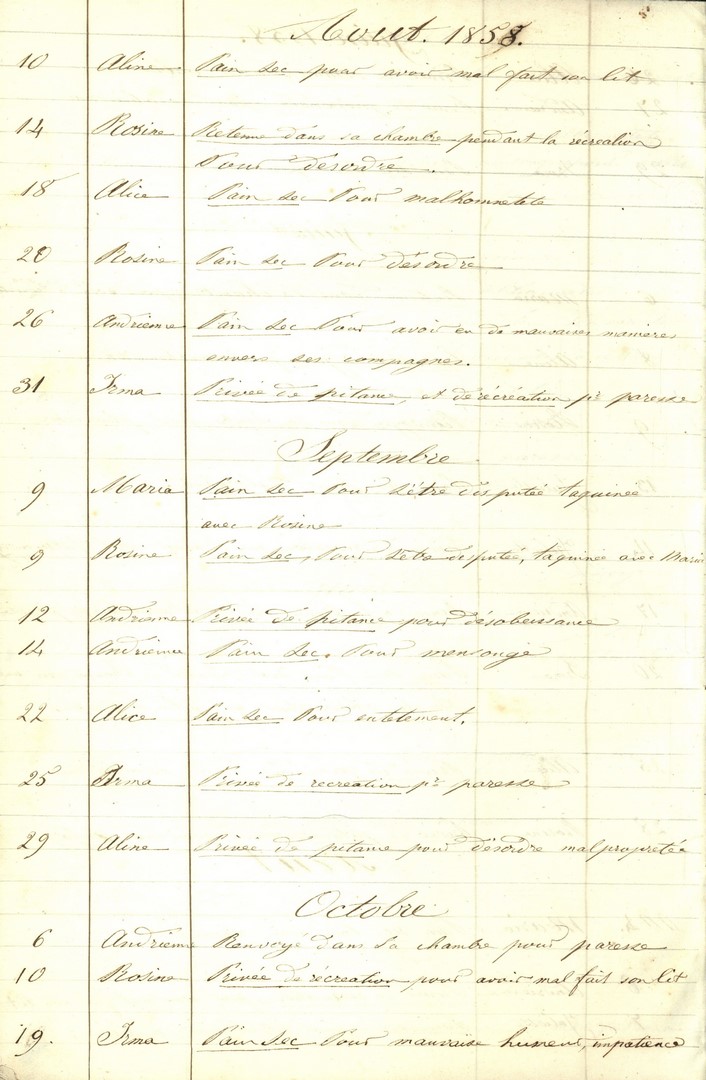 Aout. 1858.
10 Aline Pain sec pour avoir mal fait son lit
14 Rosine Retenue dans sa chambre pendant la récréation
Pour désordre.
18 Alice Pain sec Pour malhonnetete
20 Rosine Pain sec Pour désordre
26 Andrienne Pain sec Pour avoir eu de mauvaises manieres
envers ses compagnes.
31 Irma Privée de pitance, et de récréation pr paresse
Septembre
9 Maria Pain sec Pour s'être disputée taquinée
avec Rosine
9 Rosine Pain sec, Pour s'etre disputée, taquinée avec Maria
12 Andrienne Privée de pitance pour désobeissance
14 Andrienne Pain sec. Pour mensonge
22 Alice Pain sec Pour entetement.
25 Irma Privée de recreation pr paresse
29 Aline Privée de pitance pour désordre malpropretée
Octobre
6 Andrienne Renvoyé dans sa chambre pour paresse
10 Rosine Privée de récréation pour avoir mal fait son lit
19. Irma Pain sec Pour mauvaise humeur, impatience